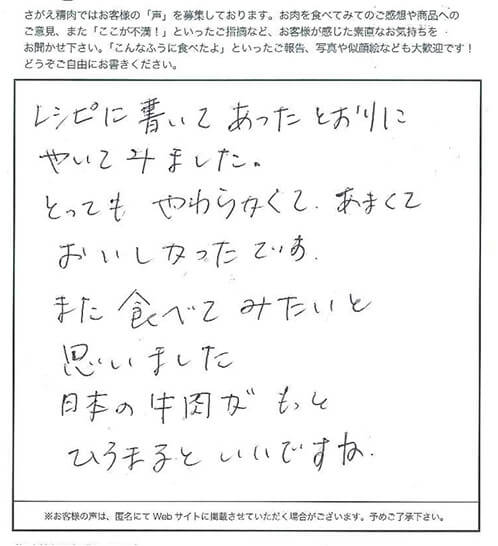 さがえ精肉ではお客様の「声」を募集しております。お肉を食べてみてのご感想や商品への
ご意見、また「ここが不満！」といったご指摘など、お客様が感じた素直なお気持ちを
お聞かせ下さい。「こんなふうに食べたよ」といったご報告、写真や似顔絵なども大歓迎です！
どうぞご自由にお書きください。
レシピに書いてあったとおりに
やいてみました。
とってもやわらかくて、あまくて
おいしかったです。
また食べてみたいと
思いました
日本の牛肉がもっと
ひろまるといいですね。
※お客様の声は、匿名にてWebサイトに掲載させていただく場合がございます。予めご了承下さい。